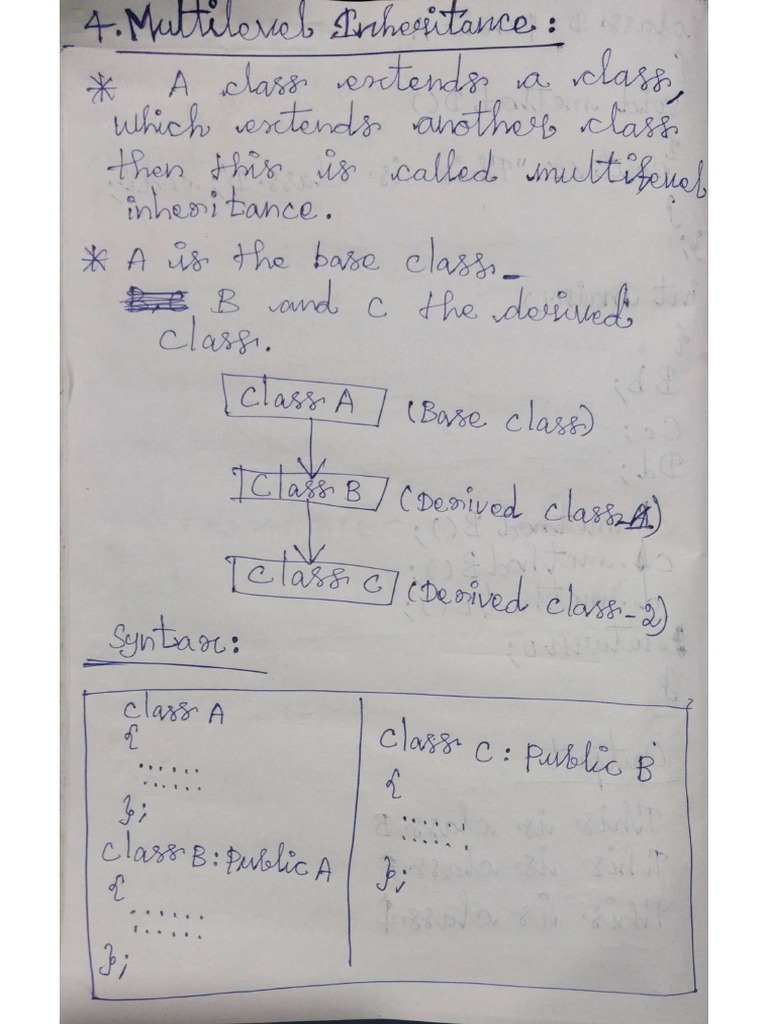 4. Multilevel Inheritance:
* A class extends a class,
which extends another class
then this is called multilevel
inheritance.
* A is the base class_
B and C the derived
class.
Class A (Base class)
Class B (Derived class-1)
Class C (Derived class-2)
Syntax:
class A
{
......
......
};
class B: Public A
{
......
......
};
class C: Public B
{
......
......
};